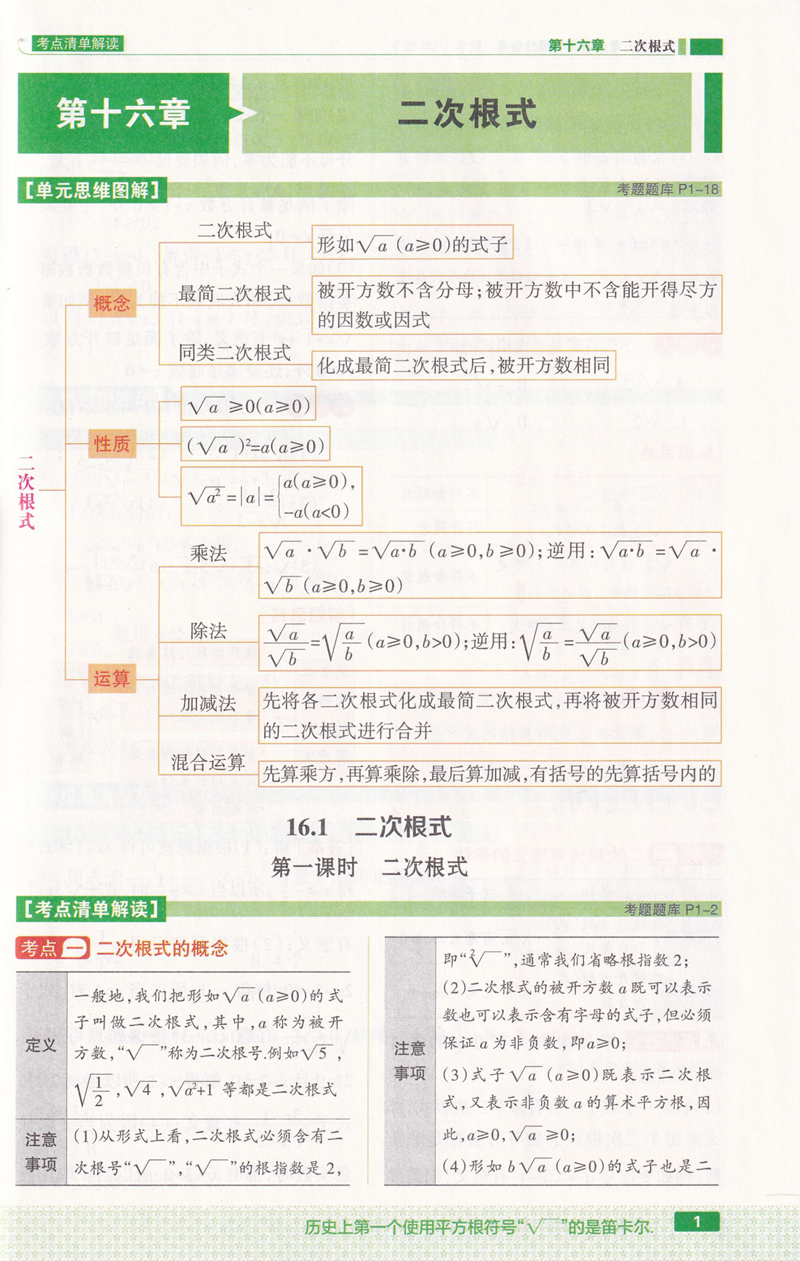 考点清单解读
第十六章 二次根式
第十六章
二次根式
【单元思维图解】
考题题库 P1-18
二次根式
概念
二次根式
形如√a (a≥0)的式子
最简二次根式
被开方数不含分母;被开方数中不含能开得尽方
的因数或因式
同类二次根式
化成最简二次根式后,被开方数相同
性质
√a ≥0(a≥0)
(√a )²=a(a≥0)
√a² =|a|={a(a≥0),
-a(a<0)
运算
乘法
√a · √b =√a·b (a≥0,b≥0);逆用:√a·b =√a ·
√b (a≥0,b≥0)
除法
√a/√b=√(a/b) (a≥0,b>0);逆用:√(a/b) =√a/√b(a≥0,b>0)
加减法
先将各二次根式化成最简二次根式,再将被开方数相同
的二次根式进行合并
混合运算
先算乘方,再算乘除,最后算加减,有括号的先算括号内的
16.1 二次根式
第一课时 二次根式
【考点清单解读】
考题题库 P1-2
考点一 二次根式的概念
定义
一般地,我们把形如√a (a≥0)的式
子叫做二次根式,其中,a 称为被开
方数,“√ ”称为二次根号.例如√5 ,
√(1/2) ,√4 ,√a²+1 等都是二次根式
注意
事项
(1)从形式上看,二次根式必须含有二
次根号“√ ”,“√ ”的根指数是 2,
注意
事项
即“²√ ”,通常我们省略根指数 2;
(2)二次根式的被开方数 a 既可以表示
数也可以表示含有字母的式子,但必须
保证 a 为非负数,即a≥0;
(3)式子√a (a≥0)既表示二次根
式,又表示非负数 a 的算术平方根,因
此,a≥0,√a ≥0;
(4)形如 b√a (a≥0)的式子也是二
历史上第一个使用平方根符号“√ ”的是笛卡尔.
1